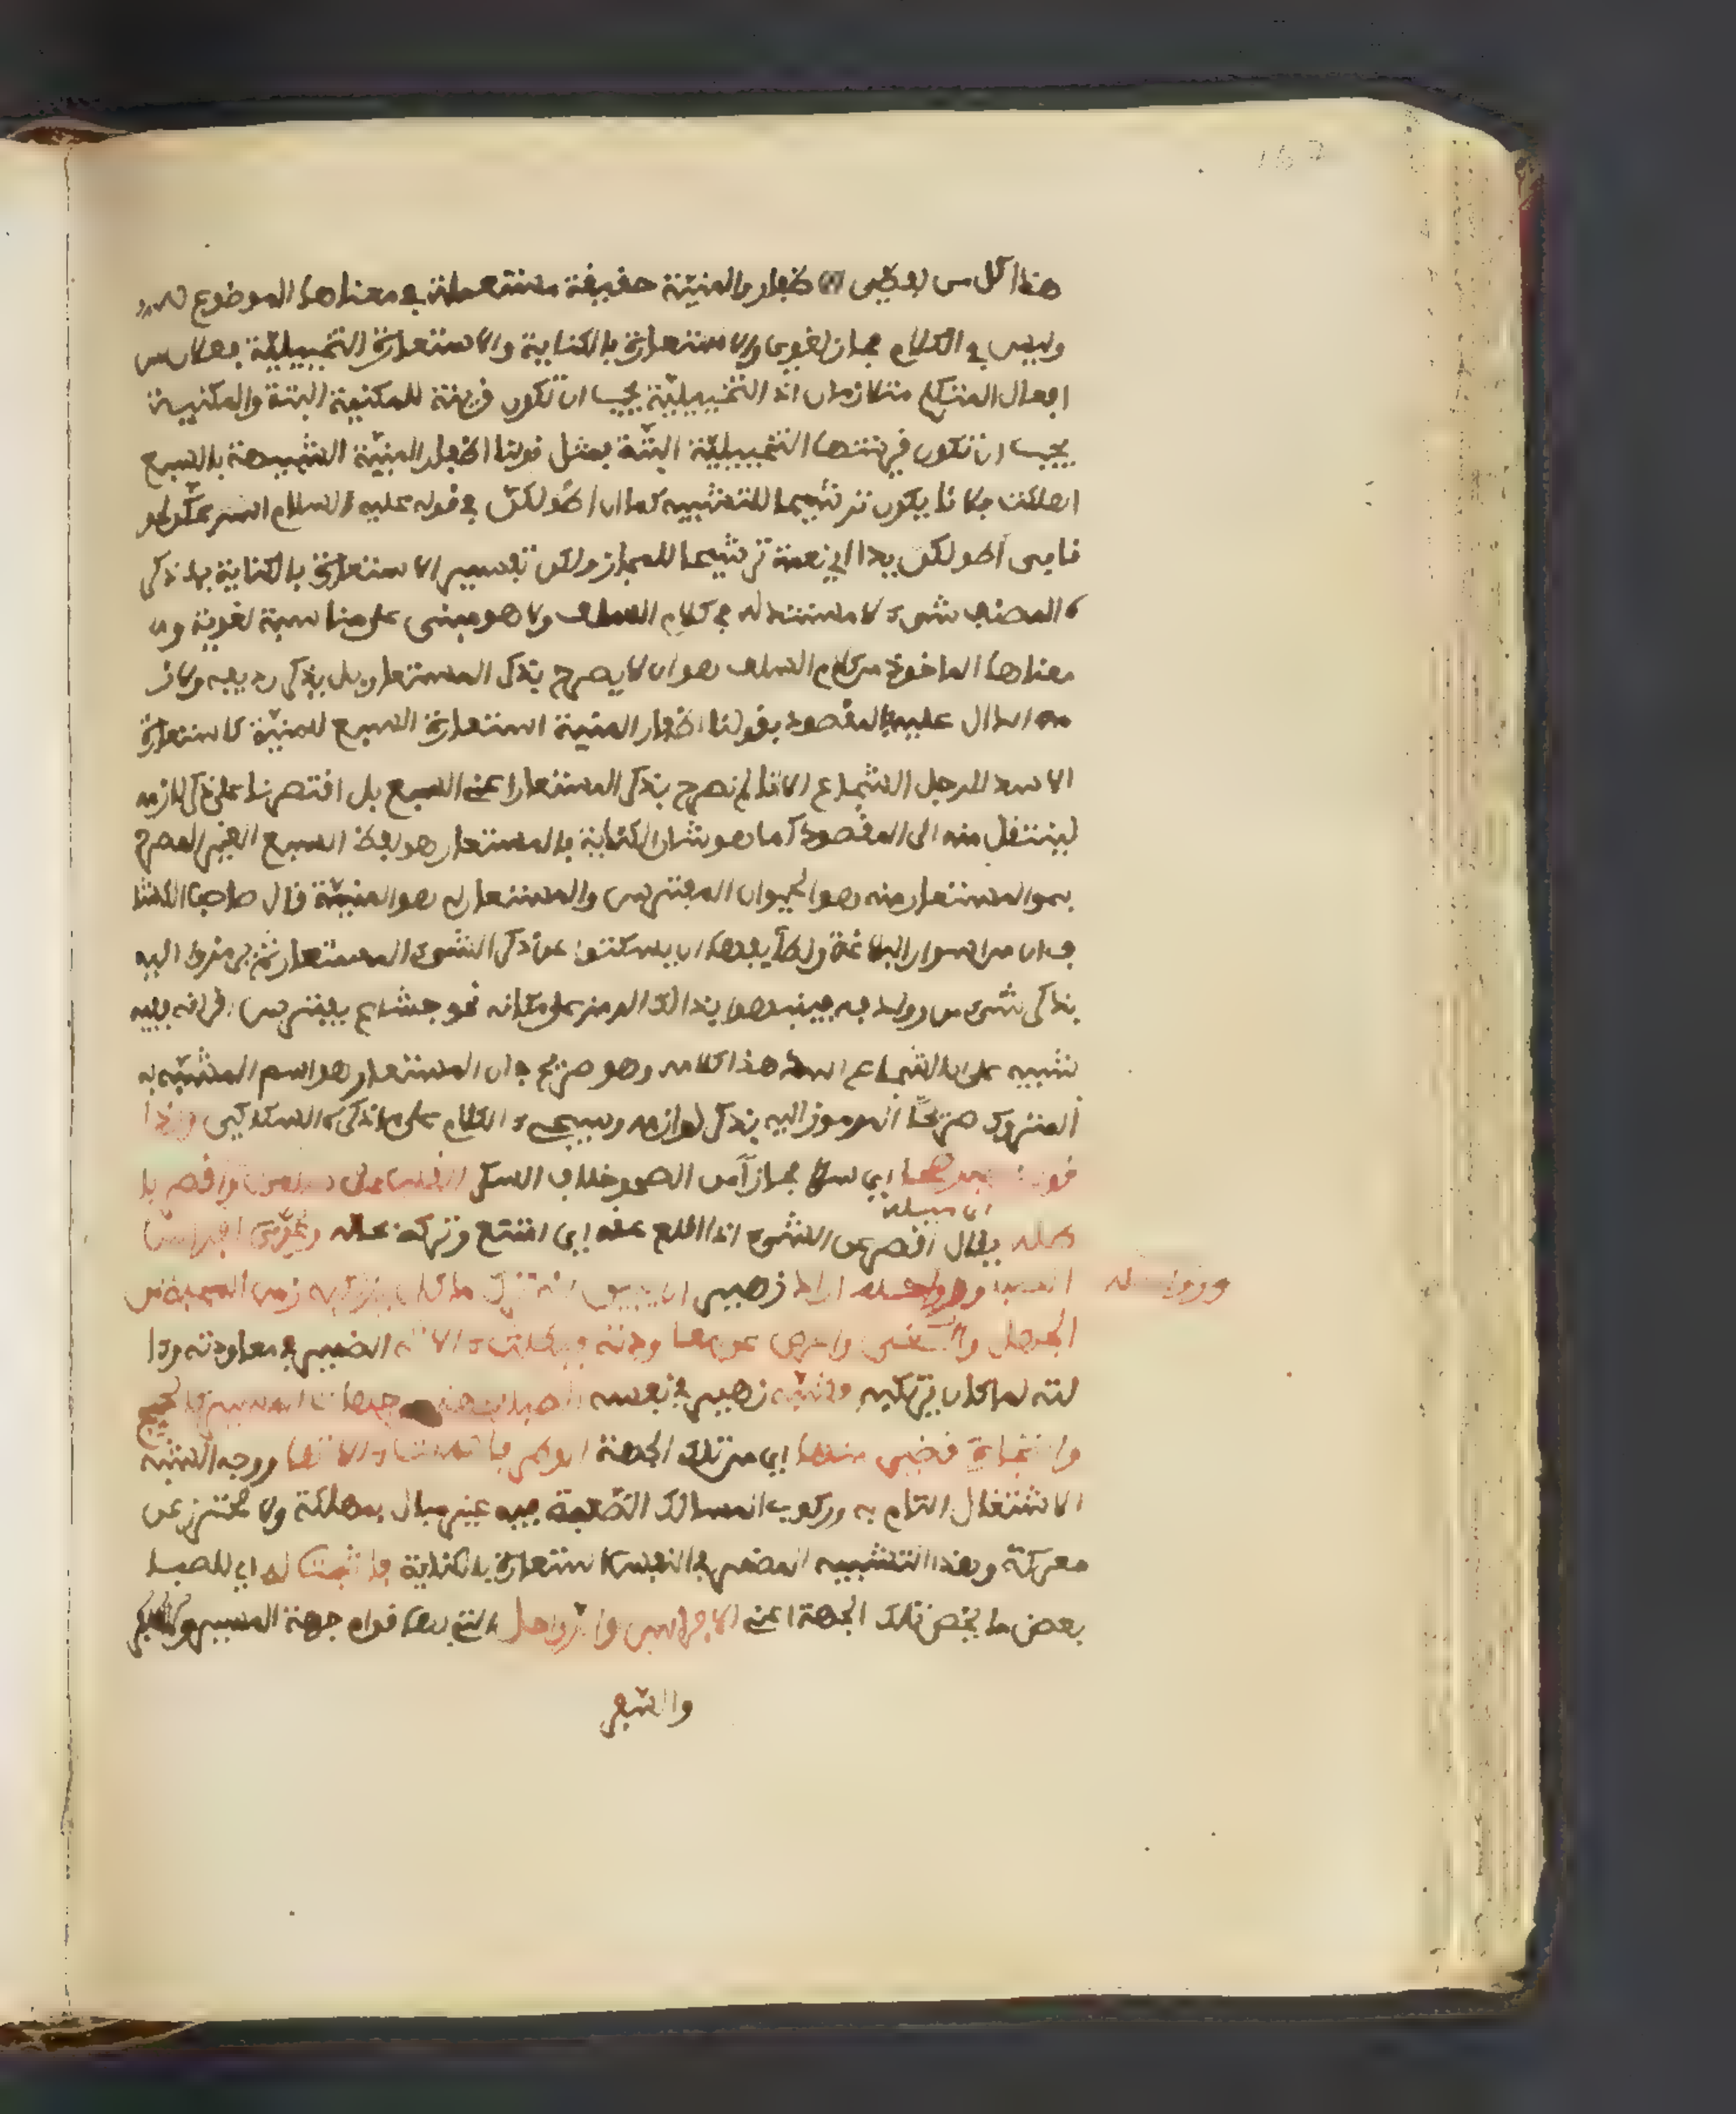 هذا كل من لفظي الاظفار والمنية حقيقة مستعملة في معناها الموضوع له
وليس في الكلام مجاز لغوي والاستعارة بالكناية والاستعارة التخييلية فعلان من
افعال المتكلم متلازمان اذ التخييلية يجب ان تكون قرينة للمكنية البتة والمكنية
يجب ان تكون قرينتها التخييلية البتة فمثل قولنا اظفار المنية الشبيهة بالسبع
اهلكت فلانا يكون ترشيحا للتشبيه كما ان اطولكن في قوله عليه السلام اسرعكن لحو
قا بي اطولكن يدا اي نعمة ترشيحا للمجاز ولكن تفسير الاستعارة بالكناية بما ذكر
ه المصنف شيء لا مستند له في كلام السلف ولا هو مبني على مناسبة لغوية و
معناها الماخوذ من كلام السلف هو ان لا يصرح بذكر المستعار بل بذكر رديفه ولاز
مه الدال عليه فالمقصود بقولنا اظفار المنية استعارة السبع للمنية كاستعارة
الاسد للرجل الشجاع الا انا لم نصرح بذكر المستعار اعني السبع بل اقتصرنا على ذكر لازمه
لينتقل منه الى المقصود كما هو شان الكناية فالمستعار هو لفظ السبع الغير المصرح
به والمستعار منه هو الحيوان المفترس والمستعار له هو المنية قال صاحب الكشا
ف ان من اسرار البلاغة ولطايفها ان يسكتوا عن ذكر الشيء المستعار ثم يرمزوا اليه
بذكر شيء من روادفه فينبهوا بذالك الرمز على مكانه نحو شجاع يفترس اقرانه ففيه
تنبيه على ان الشجاع اسد هذا كلامه وهو صريح في ان المستعار هو اسم المشبه به
المتروك صريحا المرموز اليه بذكر لوازمه وسيجيء الكلام على ما ذكره السكاكي وكذا
قول زهير صحا اي سلا مجازا من الصحو خلاف السكر القلب عن سلمى واقصر با
اي مبطلة
طله يقال اقصر عن الشيء اذا اقلع عنه اي امتنع وتركه عنه وعري افراس
الصبا ورواحله اراد زهير ان يبين انه ترك ما كان يرتكبه زمن المحبة من
ورواحله
الجهل والغي واعرض عن معاودته فبطلت الاته الضمير في معاودته وا
لته لما كان يرتكبه فشبه زهير في نفسه الصبا بجهة من جهات المسير كالحج
والتجارة قضي منها اي من تلك الجهة الوطر فاهملت الاتها ووجه الشبه
الاشتغال التام به وركوب المسالك الصعبة فيه غير مبال بمهلكة ولا محترز عن
معركة وهذا التشبيه المضمر في النفس استعارة بالكناية فاثبت له اي للصبا
بعض ما يخص تلك الجهة اعني الافراس والرواحل التي بها قوام جهة المسير
والسفر